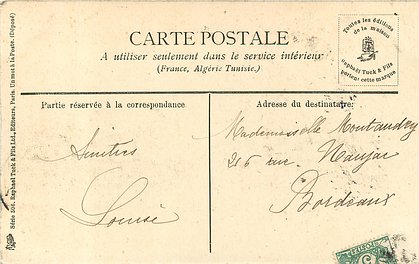 CARTE POSTALE
A utiliser seulement dans le service intérieur
(France, Algérie Tunisie.)
Toutes les éditions
de la maison
Raphael Tuck & Fils
portent cette marque
Partie réservée à la correspondance
Adresse du destinataire:
Louise
Mademoiselle Montaudry
216 rue Naujac
Bordeaux
Série 306. Raphael Tuck & Fils Ltd., Editeurs, Paris. Un mot à la Poste. (Déposé)